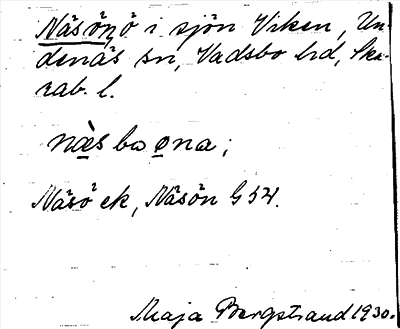 Näsön, ö i sjön Viken, Un-
denäs sn, Vadsbo hd, Ska-
rab. l.
næs bo ọna;
Näsö ek, Näsön G 54.
Maja Bergstrand 1930.